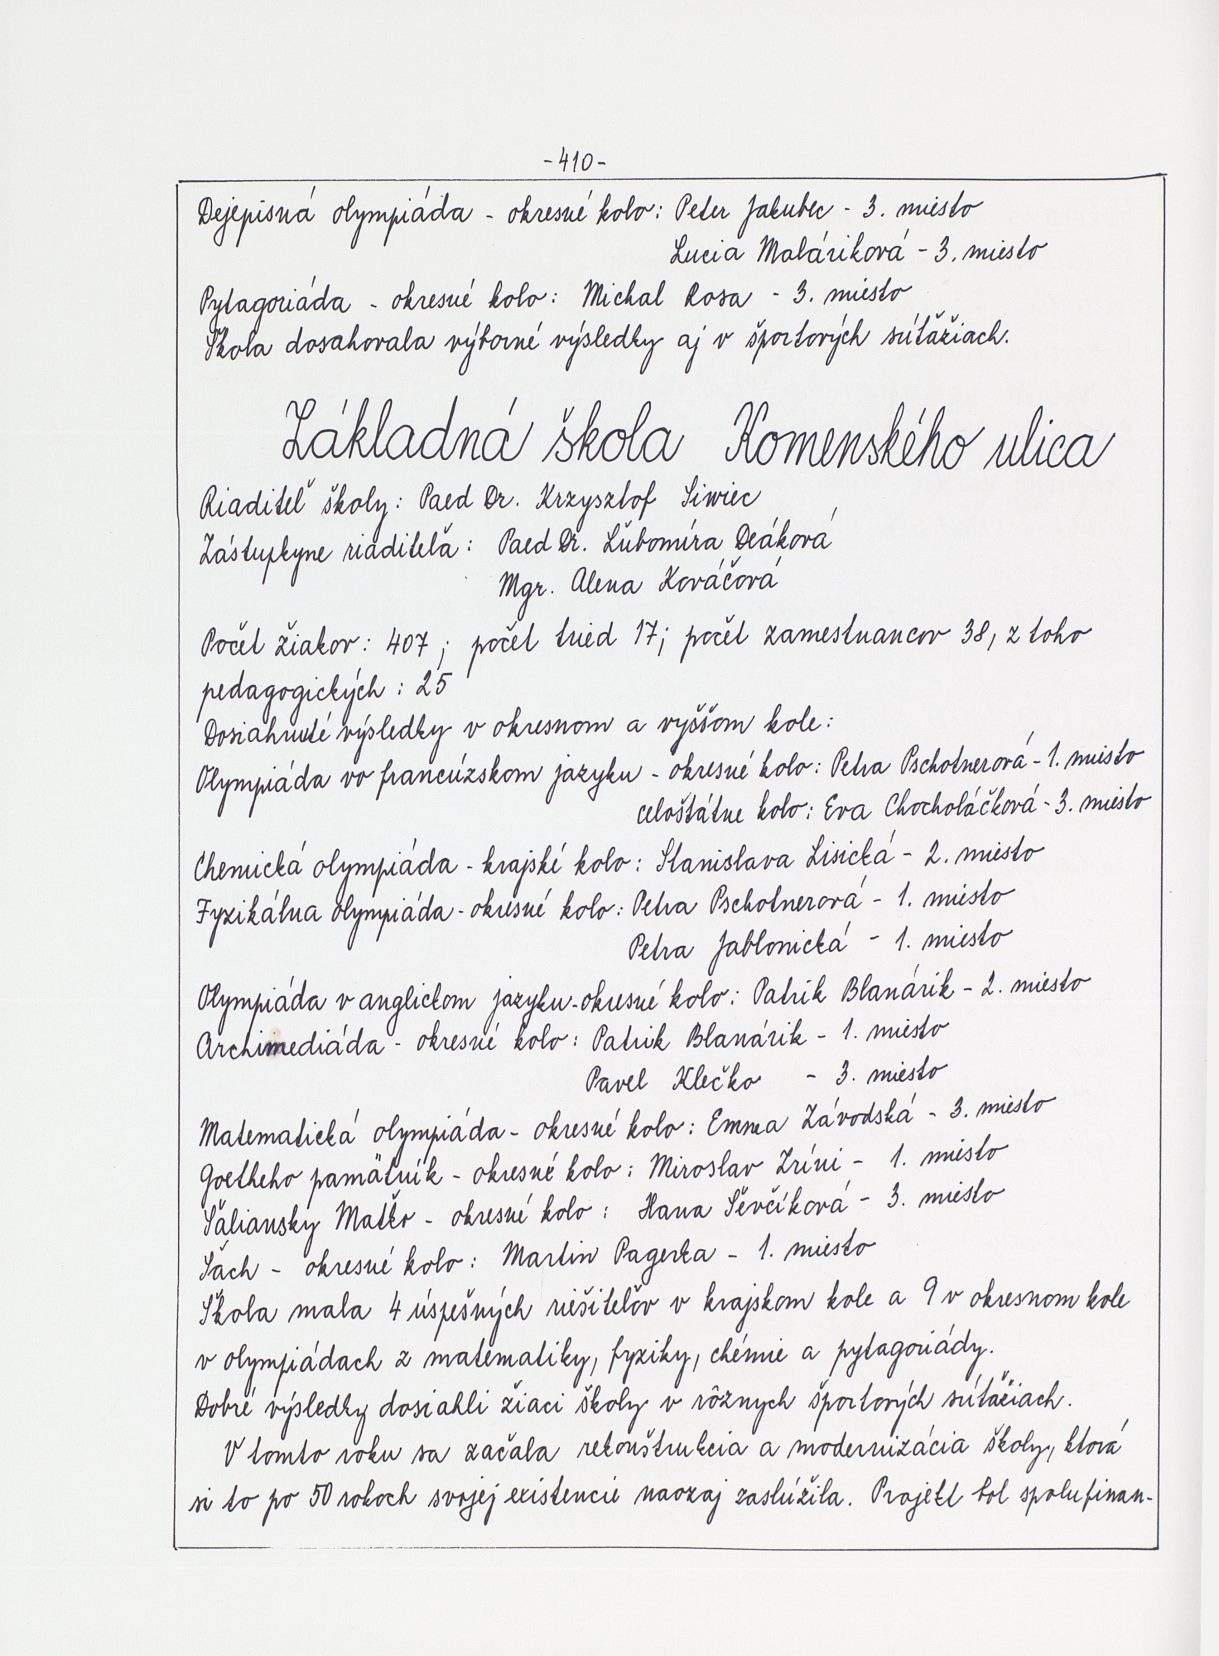 -410-
Dejepisná olympiáda - okresné kolo: Peter Jakubec - 3. miesto
Lucia Maláriková - 3. miesto
Pytagoriáda - okresné kolo: Michal Rosa - 3. miesto
Škola dosahovala výborné výsledky aj v športových súťažiach.
Základná škola Komenského ulica
Riaditeľ školy: Paed Dr. Krzysztof Siwiec
Zástupkyne riaditeľa: Paed Dr. Ľubomíra Deáková
Mgr. Alena Kováčová
Počet žiakov: 407; počet tried 17; počet zamestnancov 38, z toho
pedagogických: 25
Dosiahnuté výsledky v okresnom a vyššom kole:
Olympiáda vo francúzskom jazyku - okresné kolo: Petra Pschotnerová - 1. miesto
celoštátne kolo: Eva Chocholáčková - 3. miesto
Chemická olympiáda - krajské kolo: Stanislava Lisická - 2. miesto
Fyzikálna olympiáda - okresné kolo: Petra Pschotnerová - 1. miesto
Petra Jablonická - 1. miesto
Olympiáda v anglickom jazyku - okresné kolo: Patrik Blanárik - 2. miesto
Archimediáda - okresné kolo: Patrik Blanárik - 1. miesto
Pavel Klečko - 3. miesto
Matematická olympiáda - okresné kolo: Emma Závodská - 3. miesto
Goetheho pamätník - okresné kolo: Miroslav Zríni - 1. miesto
Šaliansky Maťko - okresné kolo: Hana Ševčíková - 3. miesto
Šach - okresné kolo: Martin Pagerka - 1. miesto
Škola mala 4 úspešných riešiteľov v krajskom kole a 9 v okresnom kole
v olympiádach z matematiky, fyziky, chémie a pytagoriády.
Dobré výsledky dosiahli žiaci školy v rôznych športových súťažiach.
V tomto roku sa začala rekonštrukcia a modernizácia školy, ktorá
si to po 50 rokoch svojej existencie naozaj zaslúžila. Projekt bol spolufinan-